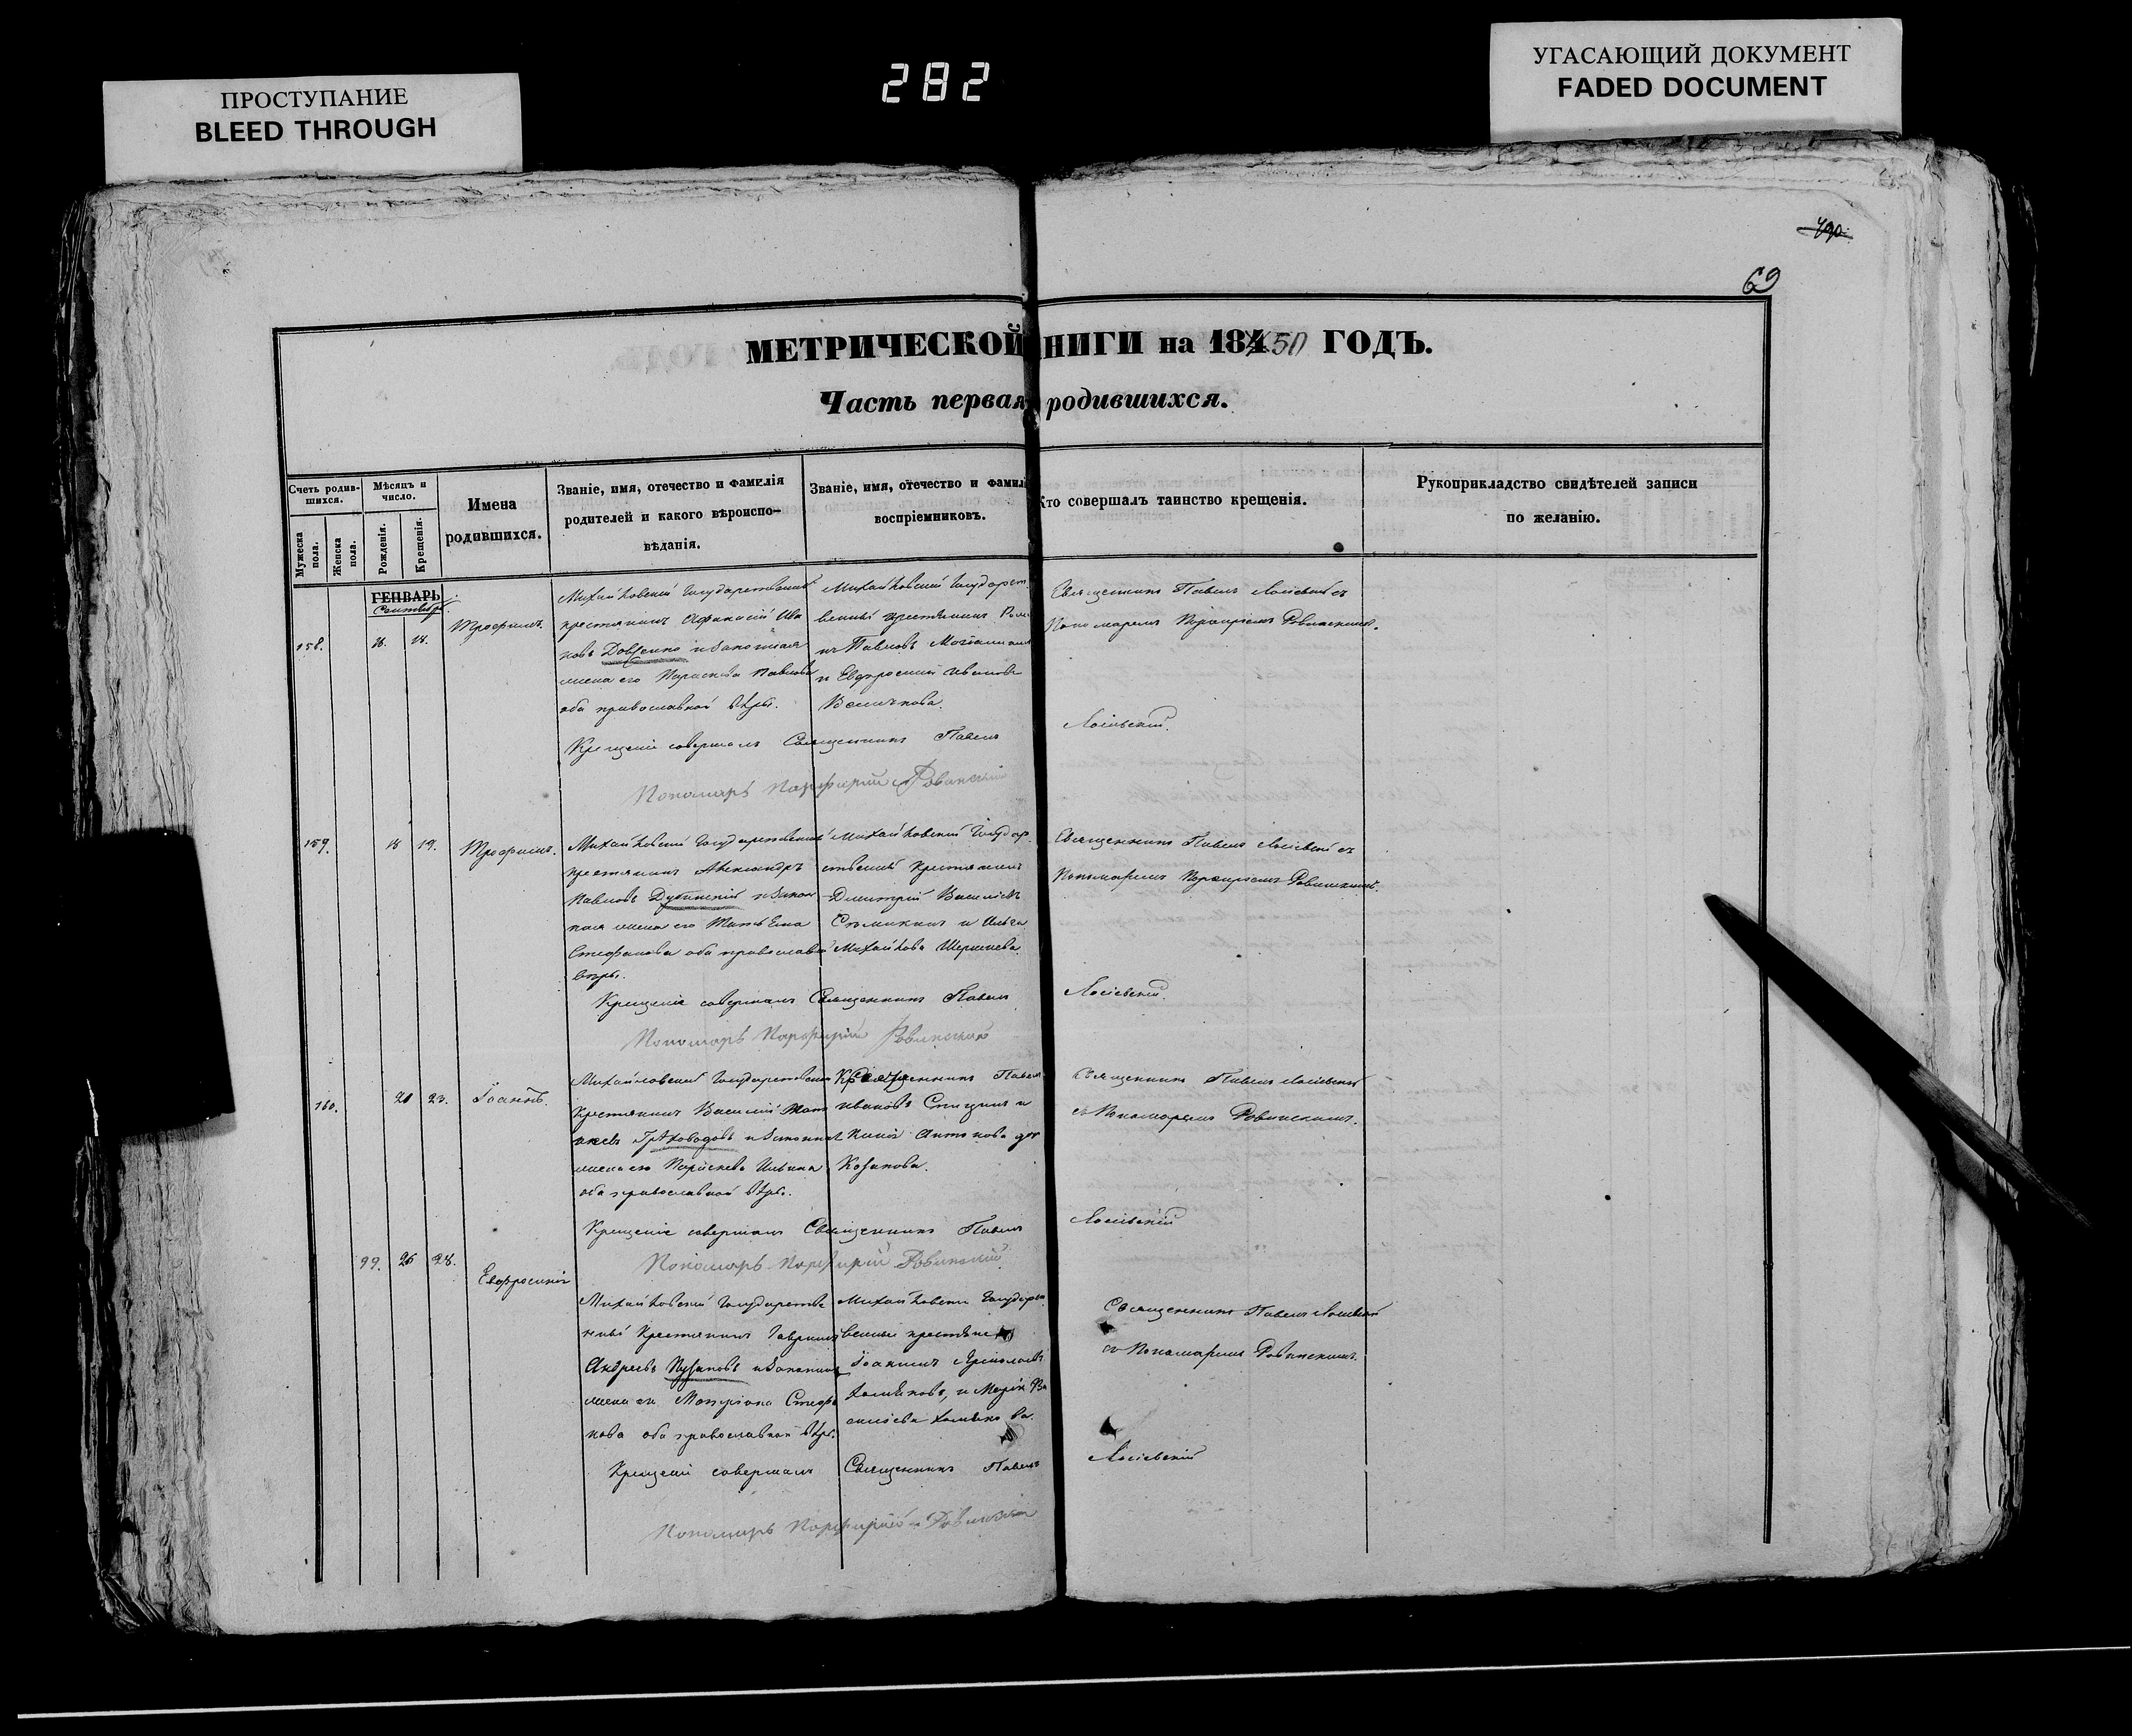 282
ПРОСТУПАНИЕ
BLEED THROUGH
УГАСАЮЩИЙ ДОКУМЕНТ
FADED DOCUMENT
490
69
МЕТРИЧЕСКОЙ НИГИ на 184 50 ГОДЪ.
Часть первая родившихся.
Счетъ родив-
шихся.
Мужеска пола.
Женска пола.
Мѣсяцъ и
число.
Рожденія.
Крещенія.
Имена
родившихся.
Званіе, имя, отечество и фамилія
родителей и какого вѣроиспо-
вѣданія.
Званіе, имя, отечество и фамил
воспріемниковъ.
Кто совершалъ таинство крещенія.
Рукоприкладство свидѣтелей записи
по желанію.
ГЕНВАРЬ
Сентябрь.
158.
18.
Трофимъ.
Михайловскій Государственный
крестянинъ Афанасій Ива
новъ Довгенко и законная
жена его Параскева Павлова
оба православной вѣры.
Михайловскій Государст
венный крестянинъ
Павловъ
и Евфросинія Иванова
Священникъ Павелъ Лосіевскій съ
Пономаремъ Порфиріемъ Ровинскимъ.
Крещеніе совершалъ Священникъ Павелъ Лосіевскій.
Пономарь Порфирій Ровинскій
159.
18
19.
Трофимъ.
Михайловскій Государственный
крестянинъ Александръ
Павловъ Дубинскій и закон
ная жена его Татьяна
Стефанова оба православной
вѣры.
Михайловскій Государ
ственный крестянинъ
Дмитрій Василіевъ
и Ольга
Михайлова
Священникъ Павелъ Лосіевскій съ
Пономаремъ Порфиріемъ Ровинскимъ.
Крещеніе совершалъ Священникъ Павелъ Лосіевскій.
Пономарь Порфирій Ровинскій
160.
21
23.
Іоаннъ.
Михайловскій Государственный
Крестянинъ Василій
Грѣховодовъ и законная
жена его Параскева Ильина
оба православной вѣры.
Священникъ Павелъ
Ивановъ и
Антонова
Козакова.
Священникъ Павелъ Лосіевскій
съ Пономаремъ Ровинскимъ.
Крещеніе совершалъ Священникъ Павелъ Лосіевскій
Пономарь Порфирій Ровинскій
99.
26
28.
Евфросинія
Михайловскій Государстве
нный Крестянинъ Гавріилъ
Андреевъ Пузановъ и законная
жена его Матрона Стефа
нова оба православной вѣры.
Михайловскій Государст
венный крестянинъ
и Марія Ва
силіева
Священникъ Павелъ Лосіевскій
съ Пономаремъ Ровинскимъ.
Крещеніе совершалъ Священникъ Павелъ Лосіевскій
Пономарь Порфирій Ровинскій